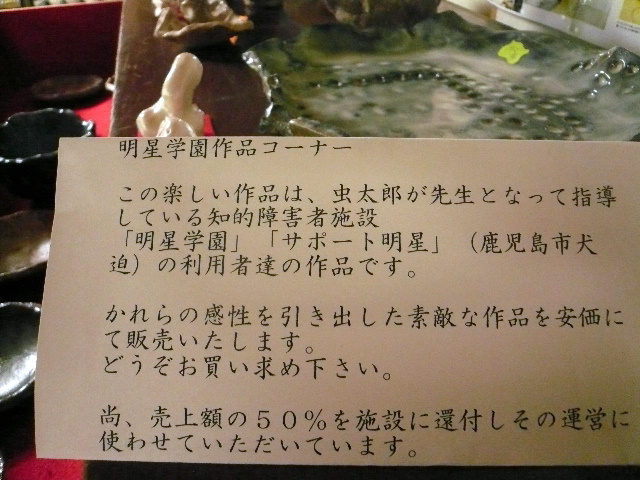 明星学園作品コーナー
この楽しい作品は、虫太郎が先生となって指導
している知的障害者施設
「明星学園」「サポート明星」（鹿児島市犬
迫）の利用者達の作品です。
かれらの感性を引き出した素敵な作品を安価に
て販売いたします。
どうぞお買い求め下さい。
尚、売上額の５０％を施設に還付しその運営に
使わせていただいています。